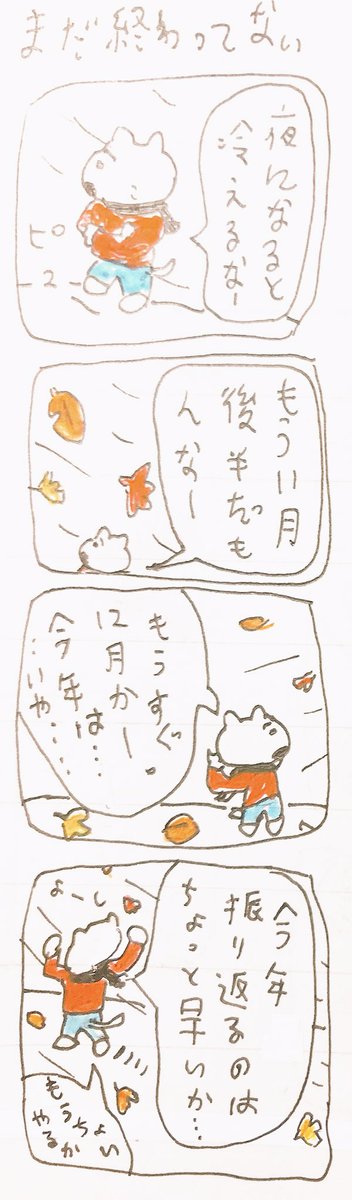 まだ終わってない
夜になると
冷えるなー
ピュー
もう11月
後半だも
んなー
もうすぐ
12月かー。
今年は……
…いや……
今年
振り返るのは
ちょっと早いか…
よーし
もうちょい
やるか